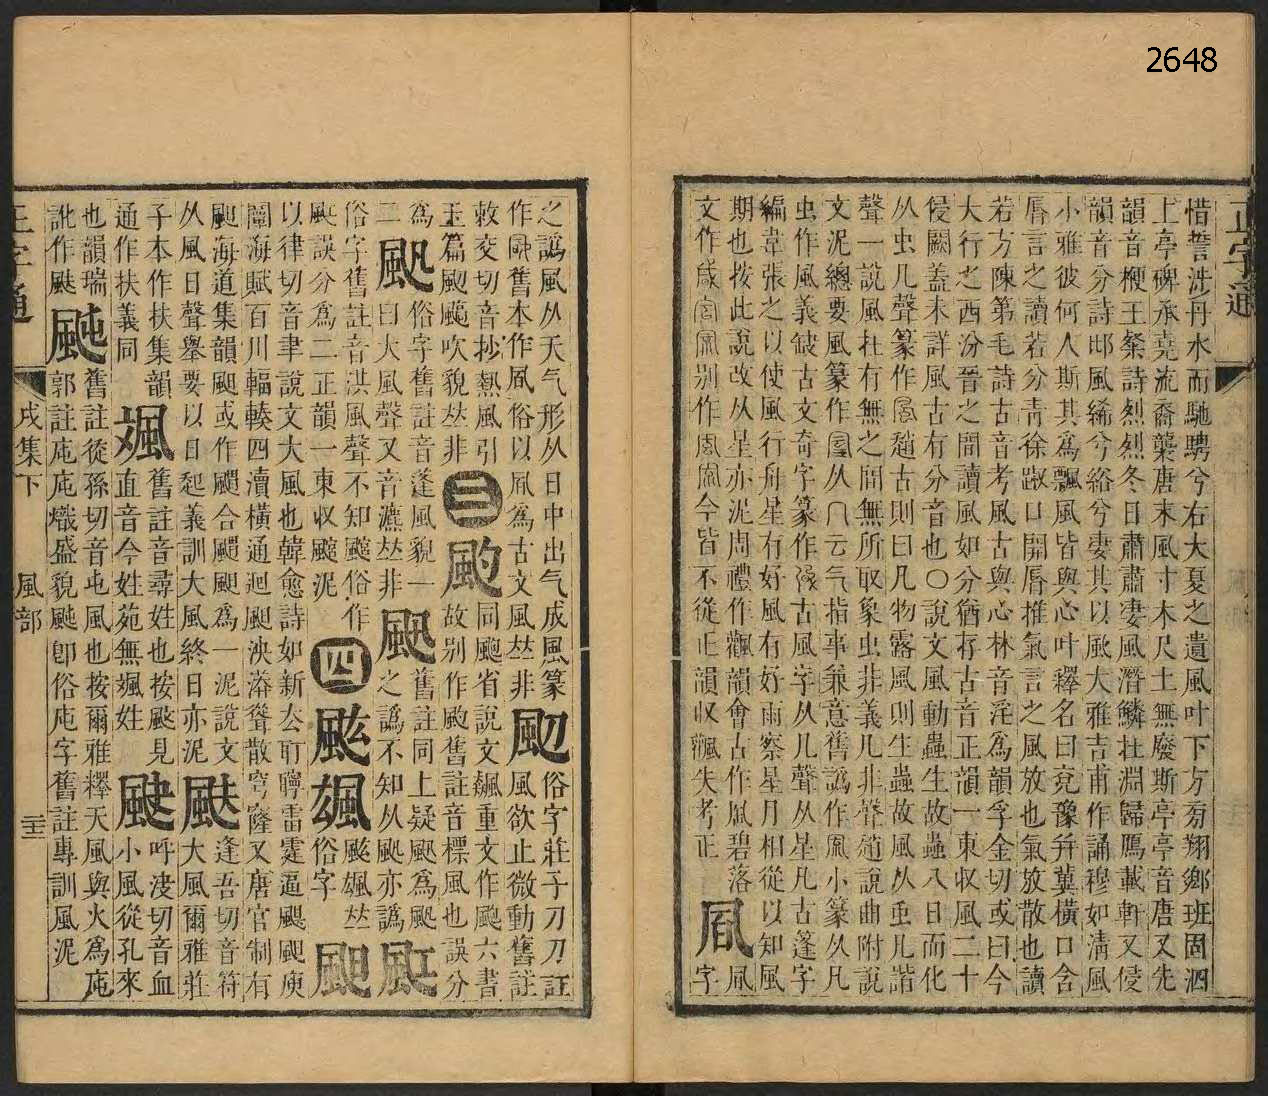 2648
正字通
惜誓涉丹水而馳騁兮右大夏之遺風叶下方旁翔鄉班固泗
上亭碑承堯流裔襲唐末風寸木尺土無廢斯亭亭音唐又先
韻音梗王粲詩烈烈冬日肅肅淒風潛鱗杜淵歸鴈載軒又侵
韻音分詩邶風絺兮綌兮淒其以風大雅吉甫作誦穆如清風
小雅彼何人斯其為飄風皆與心叶釋名曰兗豫幷冀橫口含
脣言之讀若分青徐踧口開脣推氣言之風放也氣放散也讀
若方陳第毛詩古音考風古與心林音淫為韻孚金切或曰今
大行之西汾晉之間讀風如分猶存古音正韻一東收風二十
侵闕蓋未詳風古有分音也〇說文風動蟲生故蟲八日而化
从虫凡聲篆作趙古則曰凡物露風則生蟲故風从虫凡諧
聲一說風杜有無之間無所取象虫非義凡非聲趙說曲附說
文泥總要風篆作从云气指事兼意舊譌作小篆从凡
虫作風義皷古文奇字篆作古風字从凡聲从星凡古篷字
編韋張之以使風行舟星有好風有好雨察星月相從以知風
期也按此說改从星亦泥周禮作飌韻會古作凮碧落
文作別作今皆不從正韻收飌失考正
凮字
之譌風从天气形从日中出气成風篆
作舊本作凮俗以凮為古文風𠀤非
颲風欲止微動舊註
俗字莊子刀刀註
敕交切音抄熱風引
玉篇颲颸吹貌𠀤非
三
颮同颷省說文飆重文作颮六書
故別作颭舊註音標風也誤分
為
二
俗字舊註音蓬風貌一
曰大風聲又音瀌𠀤非
舊註同上疑颲為颫
之譌不知从颫亦譌
俗字舊註音洪風聲不知颫俗作
颫誤分為二正韻一東收颫泥
四
颫颯𠀤
俗字
颶
以律切音聿說文大風也韓愈詩如新去耵聹雷霆逼颶颶庾
闡海賦百川輻輳四瀆橫通迴颶泱漭聳散穹窿又唐官制有
颶海道集韻颶或作颸合颸颶為一泥說文
从風日聲舉要以日起義訓大風終日亦泥
颫
逢吾切音符
大風爾雅莊
子本作扶集韻
通作扶義同
颯
舊註音尋姓也按颫見
直音今姓苑無颯姓
呼決切音血
小風從孔來
也韻瑞
訛作颫
舊註從孫切音屯風也按爾雅釋天風與火為庉
郭註庉庉熾盛貌颫卽俗庉字舊註專訓風泥
正字通
戌集下
風部